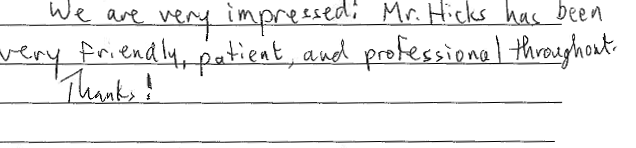 We are very impressed! Mr. Hicks has been
very friendly, patient, and professional throughout.
Thanks!